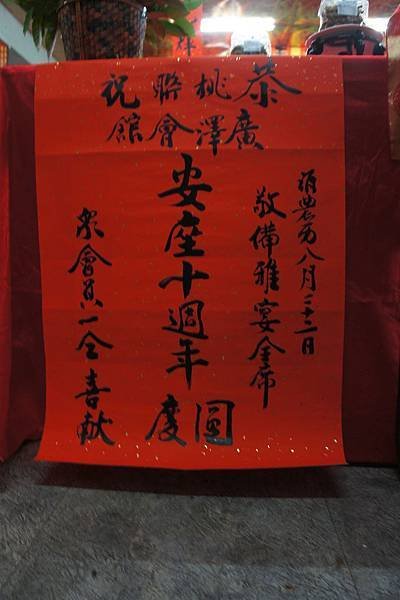 恭桃聯祝
廣澤會館
涓農历八月二十二日
敬備雅宴全席
安座十週年
圓度
眾會員一仝喜献